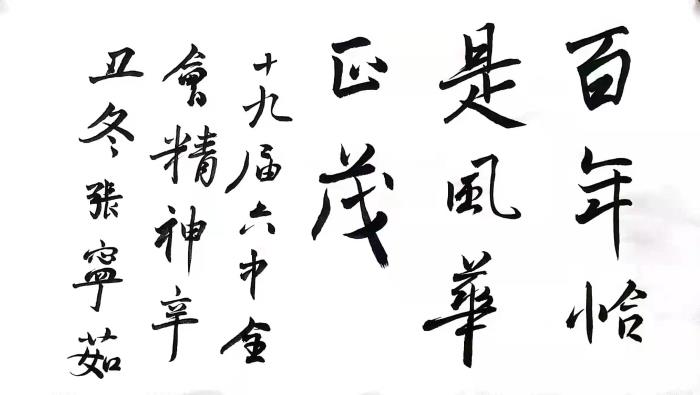 百年恰
是風華
正茂
十九届六中全
會精神辛
丑冬張寧茹